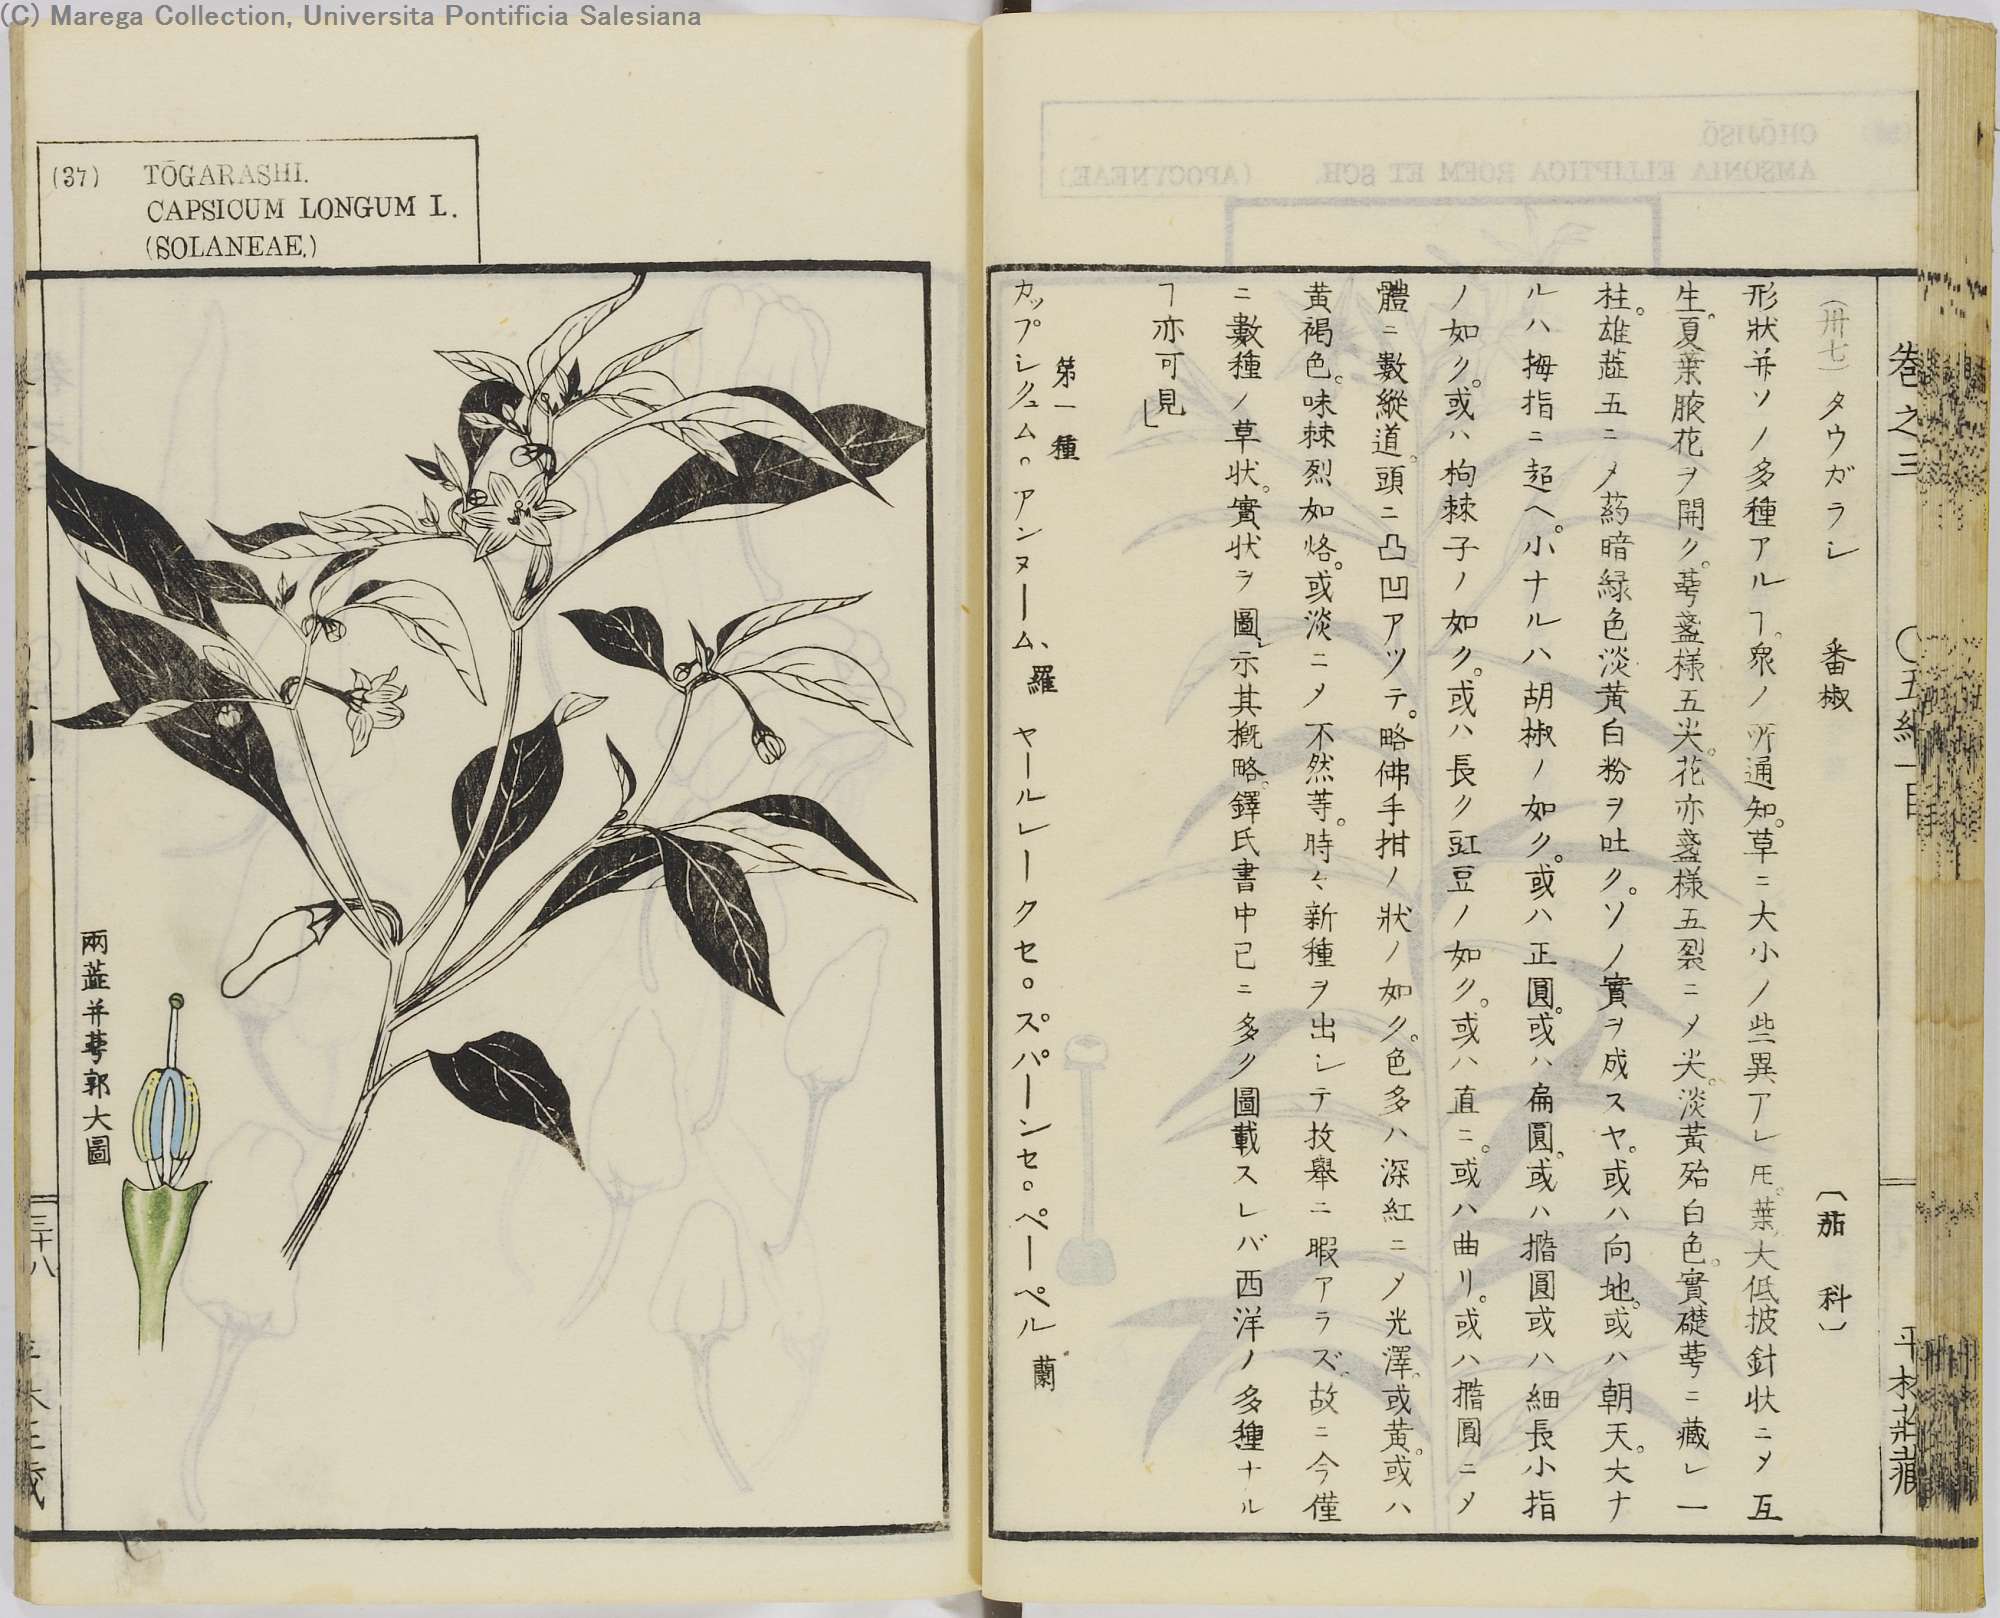 (C) Marega Collection, Universita Pontificia Salesiana
卷之三
(卅七)タウガラシ 番椒 〔茄科〕
形狀并ソノ多種アルヿ。衆ノ所通知。草ニ大小ノ些異アレ𪜈。葉大低披針状ニメ互
生。夏葉腋花ヲ開ク。萼盞樣五尖。花亦盞樣五裂ニメ尖。淡黃殆白色。實礎萼ニ藏レ一
柱。雄蕋五ニメ葯暗緑色淡黃白粉ヲ吐ク。ソノ實ヲ成スヤ。或ハ向地。或ハ朝天。大ナ
ルハ拇指ニ超ヘ。小ナルハ胡椒ノ如ク。或ハ正圓。或ハ扁圓。或ハ撱圓或ハ細長小指
ノ如ク。或ハ枸棘子ノ如ク。或ハ長ク豇豆ノ如ク。或ハ直ニ。或ハ曲リ。或ハ撱圓ニメ
體ニ數縱道。頭ニ凸凹アツテ。略佛手柑ノ狀ノ如ク。色多ハ深紅ニメ光澤。或黃。或ハ
黃褐色。味棘烈如烙。或淡ニメ不然等。時々新種ヲ出シテ枚舉ニ暇アラズ。故ニ今僅
ニ數種ノ草状。實状ヲ圖乄示其概略。鐸氏書中已ニ多ク圖載スレバ西洋ノ多種ナル
ヿ亦可見」
第一種
カップシクュム。アンヌーム、羅 ヤールレークセ。スパーンセ。ペーペル 蘭
(37) TŌGARASHI.
CAPSICUM LONGUM L.
(SOLANEAE.)
兩蕋并萼郭大圖
三十八